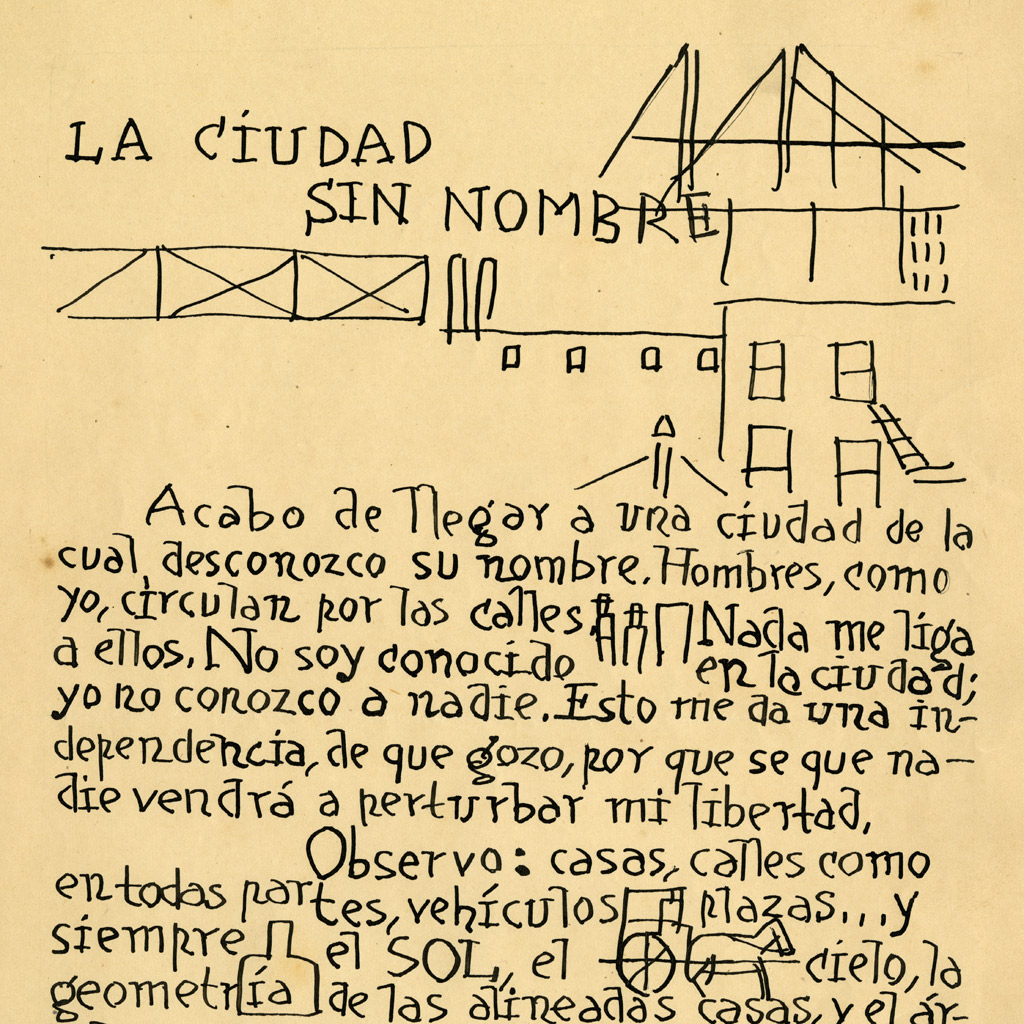 LA CIUDAD
SIN NOMBRE
Acabo de llegar a una ciudad de la
cual, desconozco su nombre. Hombres, como
yo, circulan por las calles. Nada me liga
a ellos. No soy conocido en la ciudad;
yo no conozco a nadie. Esto me da una in-
dependencia, de que gozo, por que se que na-
die vendrá a perturbar mi libertad,
Observo: casas, calles como
en todas partes, vehículos, plazas... y
siempre el SOL, el cielo, la
geometría de las alineadas casas, y el ár-